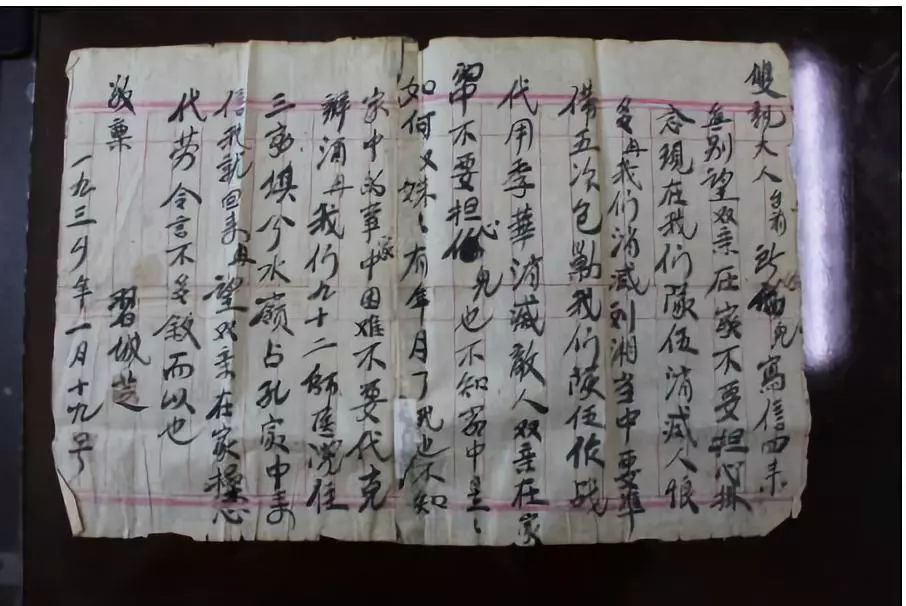 雙親大人台前 所稟兒寫信回来
無别望双亲在家不要担心掛
念現在我们隊伍消滅人狠
多再我们消滅刘湘当中要準
備五次包剿我们隊伍作战
代用季華消滅敵人双亲在家
中不要担心兒也不知家中是
如何又妹〻有年月了兒也不知
家中的事家中困难不要代克
辦酒再我们九十二师医院住
三
信我就回来再望双亲在家操心
代劳令言不多敘而以也
敬稟
習城芝
一九三 年一月十九号